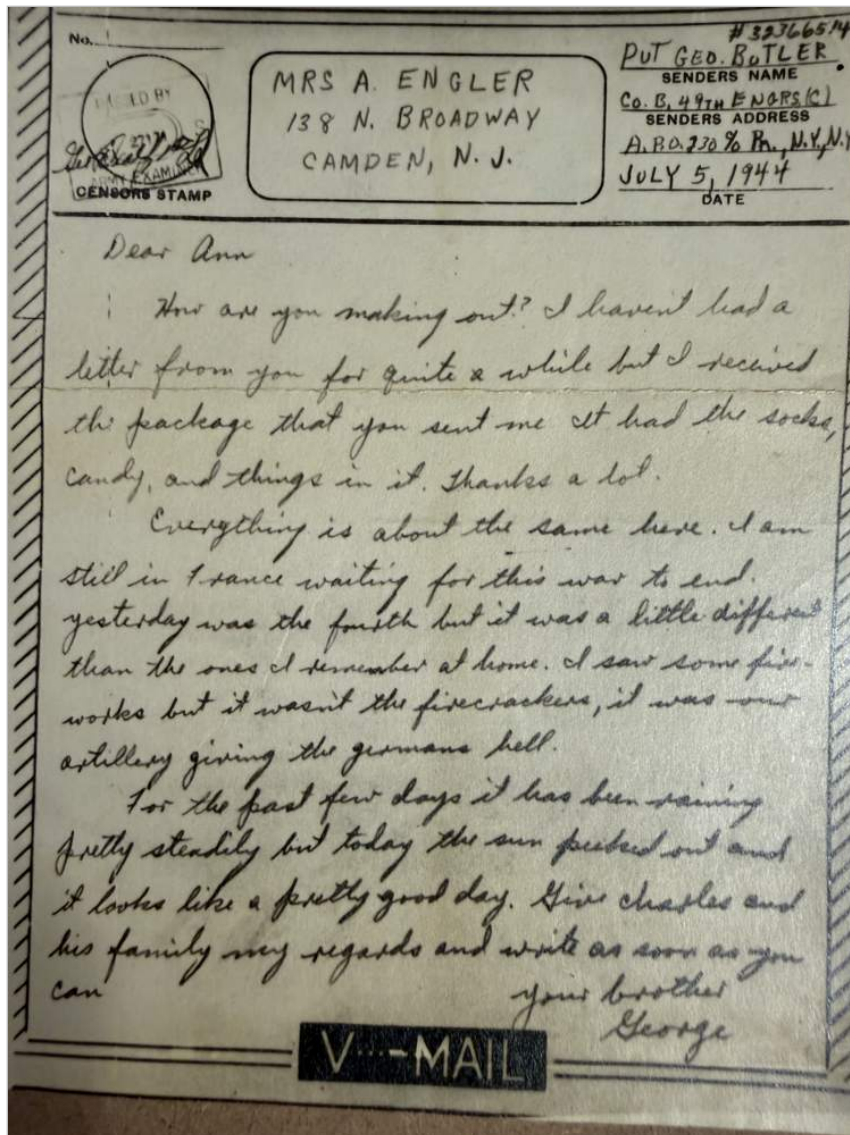 No.
# 32366514
PVT GEO. BUTLER
SENDERS NAME
Co. B, 49TH ENGRS (C)
SENDERS ADDRESS
A.P.O. 230 % Pm., N.Y., N.Y.
JULY 5, 1944
DATE
MRS A. ENGLER
138 N. BROADWAY
CAMDEN, N. J.
PASSED BY
ARMY EXAMINER
CENSORS STAMP
Dear Ann
How are you making out? I haven't had a
letter from you for quite a while but I received
the package that you sent me It had the socks,
candy, and things in it. Thanks a lot.
Everything is about the same here. I am
still in France waiting for this war to end.
yesterday was the fourth but it was a little different
than the ones I remember at home. I saw some fire-
works but it wasn't the firecrackers, it was our
artillery giving the germans hell.
For the past few days it has been raining
pretty steadily but today the sun peeked out and
it looks like a pretty good day. Give Charles and
his family my regards and write as soon as you
can
your brother
George
V···-MAIL